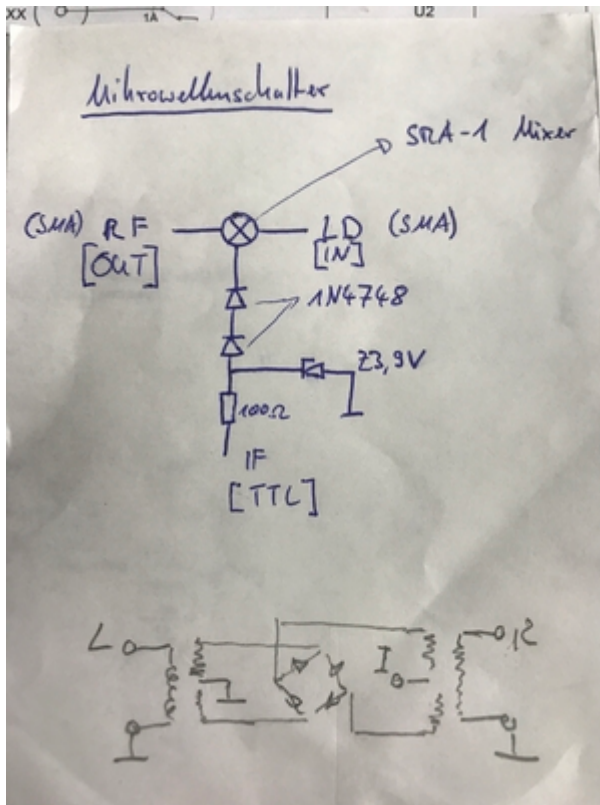 XX (
1A
U2
Mikrowellenschalter
SRA-1 Mixer
(SMA) RF
LO (SMA)
[OUT]
[IN]
1N4748
Z3,9V
100Ω
IF
[TTL]
L
I
R